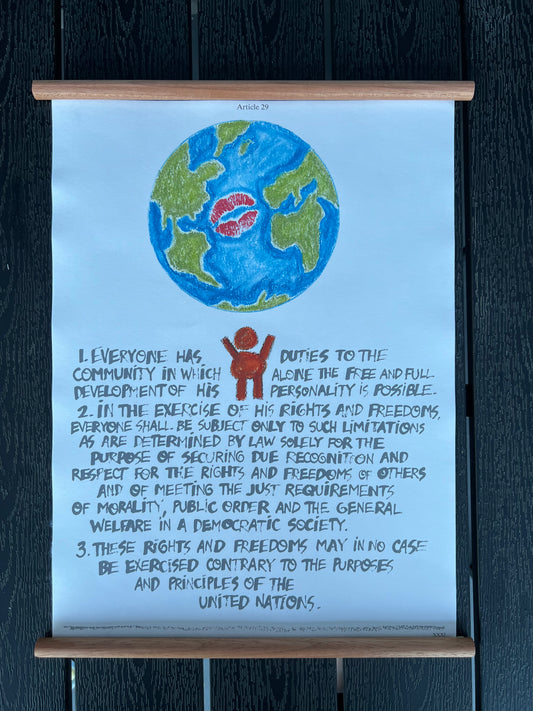 Article 29
1. EVERYONE HAS DUTIES TO THE
COMMUNITY IN WHICH ALONE THE FREE AND FULL
DEVELOPMENT OF HIS PERSONALITY IS POSSIBLE.
2. IN THE EXERCISE OF HIS RIGHTS AND FREEDOMS,
EVERYONE SHALL BE SUBJECT ONLY TO SUCH LIMITATIONS
AS ARE DETERMINED BY LAW SOLELY FOR THE
PURPOSE OF SECURING DUE RECOGNITION AND
RESPECT FOR THE RIGHTS AND FREEDOMS OF OTHERS
AND OF MEETING THE JUST REQUIREMENTS
OF MORALITY, PUBLIC ORDER AND THE GENERAL
WELFARE IN A DEMOCRATIC SOCIETY.
3. THESE RIGHTS AND FREEDOMS MAY IN NO CASE
BE EXERCISED CONTRARY TO THE PURPOSES
AND PRINCIPLES OF THE
UNITED NATIONS.